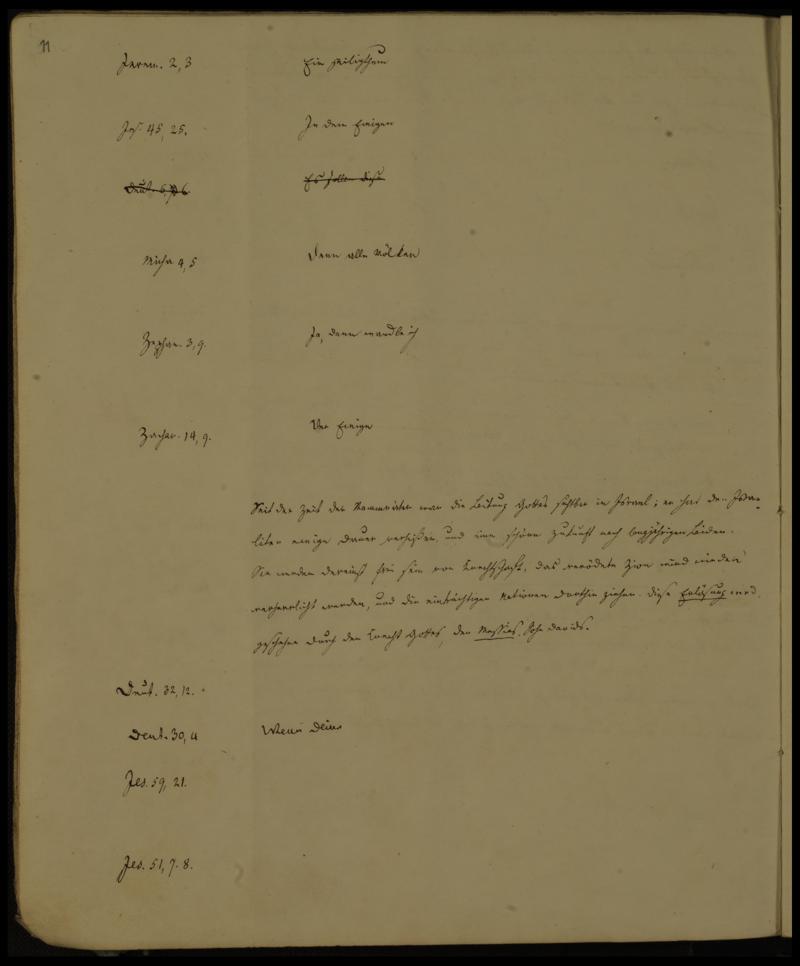 11
Jerem. 2, 3 Ein Heiligthum
Jes. 45, 25. In dem Ewigen
Deut. 6, 6 Es sollen diese
Micha 4, 5 Denn alle Völker
Zephan. 3, 9. Ja, dann wandle ich
Zachar. 14, 9. Der Ewige
Seit der Zeit der Stammväter war die Leitung Gottes sichtbar in Israel; er hat den Israe-
liten ewige Dauer verheißen, und eine schöne Zukunft nach langjährigen Leiden.
Sie werden dereinst frei sein von Knechtschaft, das verödete Zion wird wieder
verherrlicht werden, und die einträchtigen Nationen dorthin ziehen. Diese Erlösung wird
geschehen durch den Knecht Gottes, den Messias, Sohn Davids.
Deut. 32, 12.
Deut. 30, 4 Wenn deine
Jes. 59, 21.
Jes. 51, 7. 8.